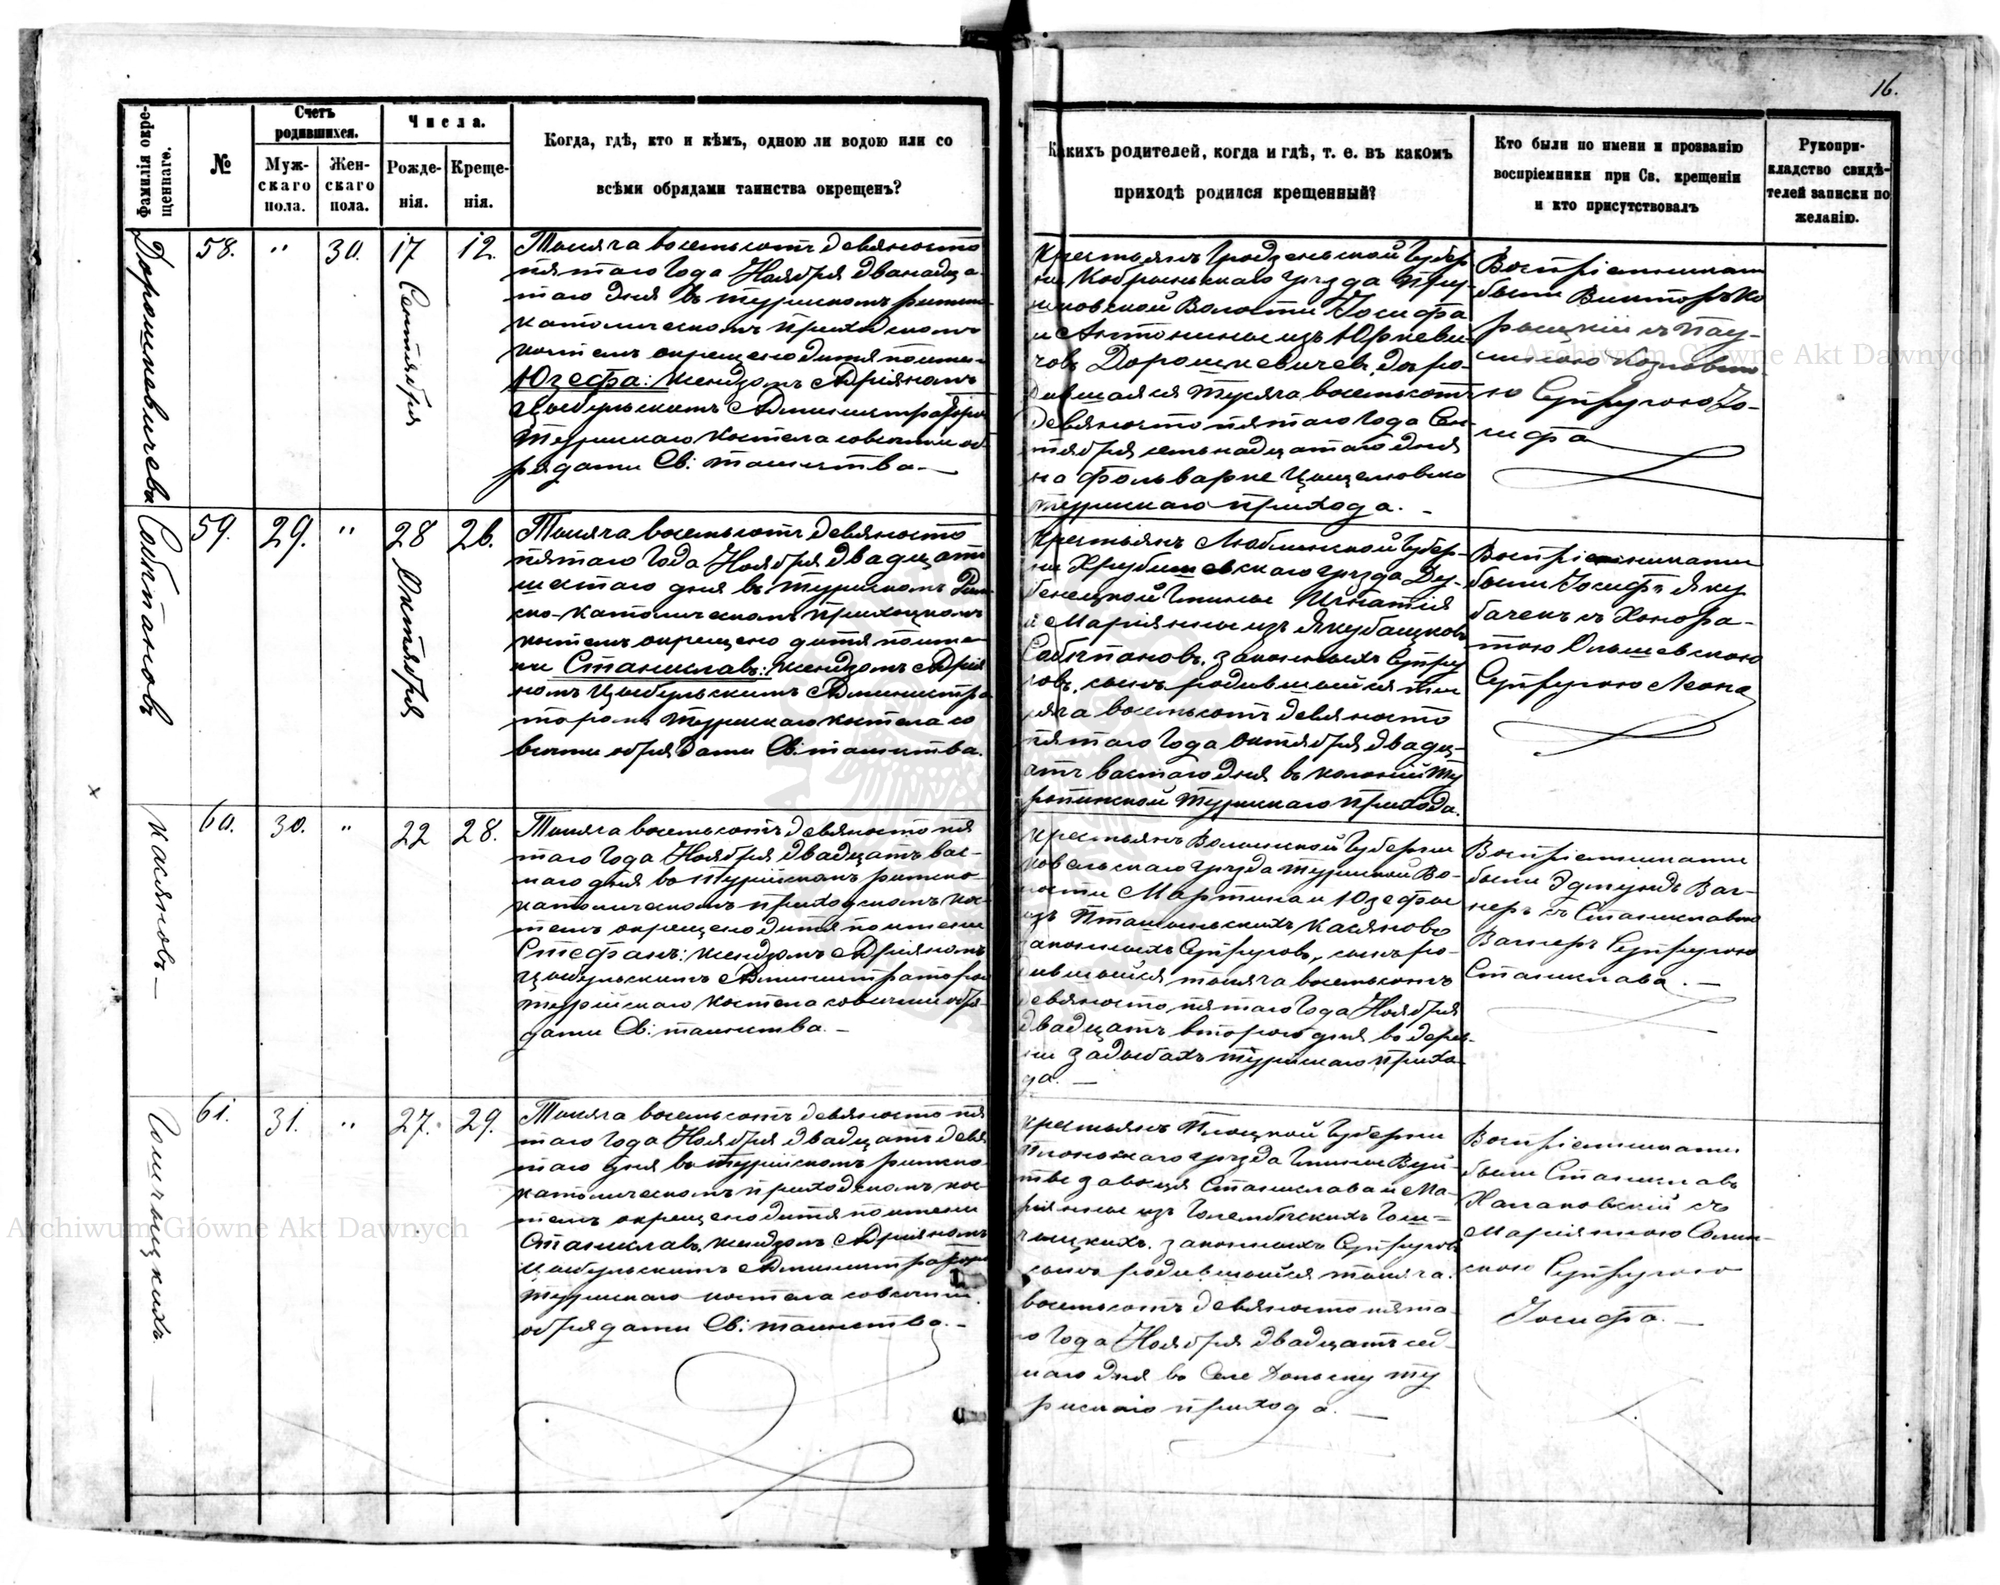 16.
Фамилія окре-
щеннаго.
№
Счетъ
родившихся.
Муж-
скаго
пола.
Жен-
скаго
пола.
Числа.
Рожде-
нія.
Креще-
нія.
Когда, гдѣ, кто и кѣмъ, одною ли водою или со
всѣми обрядами таинства окрещенъ?
Какихъ родителей, когда и гдѣ, т. е. въ какомъ
приходѣ родился крещенный?
Кто были по имени и прозванію
воспріемники при Св. крещеніи
и кто присутствовалъ
Рукопри-
кладство свидѣ-
телей записки по
желанію.
Дорошкевичевъ
58. " 30. 17 Сентября 12.
Тысяча восемьсотъ девяносто
пятаго Года Ноября дванадца-
таго дня въ Турискомъ римско-
католическомъ приходскомъ
костелѣ окрещено дитя по имени
Юзефа: Ксендзомъ Адріяномъ
Цыбульскимъ Администраторомъ
Турискаго Костела со всѣми об-
рядами Св: таинства.—
Крестьянъ Гродзенской Губер
ніи Кобринскаго уѣзда
Волости Іосифа
и Антонины изъ Юркеви-
човъ Дорошкевичевъ до ро-
дившаяся тысяча восемьсотъ
девяносто пятаго Года Сен-
тября семьнадцатаго дня
на фольварке
Турискаго прихода. -
Воспріемниками
были Викторъ Ко
съ Пау-
линою
ю Супругою Іо-
сифа
Собѣпановъ
59. 29. " 28 Октября 26.
Тысяча восемьсотъ девяносто
пятаго Года Ноября двадцать
шестаго дня въ Турискомъ Рим-
ско-католическомъ приходскомъ
костелѣ окрещено дитя по име-
ни Станиславъ: Ксендзомъ Адрія
номъ Цыбульскимъ Администра
торомъ Турискаго костела со
всѣми обрядами Св: таинства.
Крестьянъ Люблинской Губер-
ніи Хрубешевскаго уѣзда Ду-
бенецкой Гмины Игнатія
и Маріянны изъ Якубацковъ
Собѣпановъ, законныхъ Супру
говъ, сынъ родившійся тыс
яча восемьсотъ девяносто
пятаго Года Октября двадц-
ать васмаго дня въ колоніи Ту
ропинской Турискаго прихода.
Воспріемниками
были Іосифъ Яку
бачекъ съ Хонора-
тою Ольшевскою
Супругою Леона
Касяновъ —
60. 30. " 22 28.
Тысяча восемьсотъ девяносто пя
таго Года Ноября двадцать вас-
маго дня въ Турійскомъ римско-
католическомъ приходскомъ кос-
телѣ окрещено дитя по имени
Стефанъ: Ксендзомъ Адріяномъ
Цыбульскимъ Администраторомъ
Турійскаго Костела со всѣми обря-
дами Св: таинства. —
Крестьянъ Волынской Губерніи
Ковельскаго уѣзда Турійской Во-
лости Мартина и Юзефы
изъ Касяново
законныхъ Супруговъ, сынъ ро-
дившійся тысяча восемьсотъ
девяносто пятаго Года Ноября
двадцать втораго дня въ дерев-
ни Задыбахъ Турискаго прихо-
да. —
Воспріемниками
были Эдмундъ Ваг-
неръ съ Станиславою
Вагнеръ Супругою
Станислава. —
Гошчыцкихъ. —
61. 31. " 27. 29.
Тысяча восемьсотъ девяносто пя
таго Года Ноября двадцать девя
таго дня въ Турійскомъ римско-
католическомъ приходскомъ кос-
телѣ окрещено дитя по имени
Станиславъ, Ксендзомъ Адріяномъ
Цыбульскимъ Администраторомъ
Турискаго костела со всѣми
обрядами Св: таинства. —
Крестьянъ Плоцкой Губерніи
Плонскаго уѣзда Гмины Вуй-
Станислава и Ма-
ріянны изъ Голембескихъ Гош=
чыцкихъ, законныхъ Супруговъ
сынъ родившійся тысяча
восемьсотъ девяносто пята
го Года Ноября двадцать сед-
маго дня въ Селе Ту
рискаго прихода. —
Воспріемниками
были Станиславъ
съ
Маріянною
Супругою
Іосифа. —
Archiwum Główne Akt Dawnych
Archiwum Główne Akt Dawnych